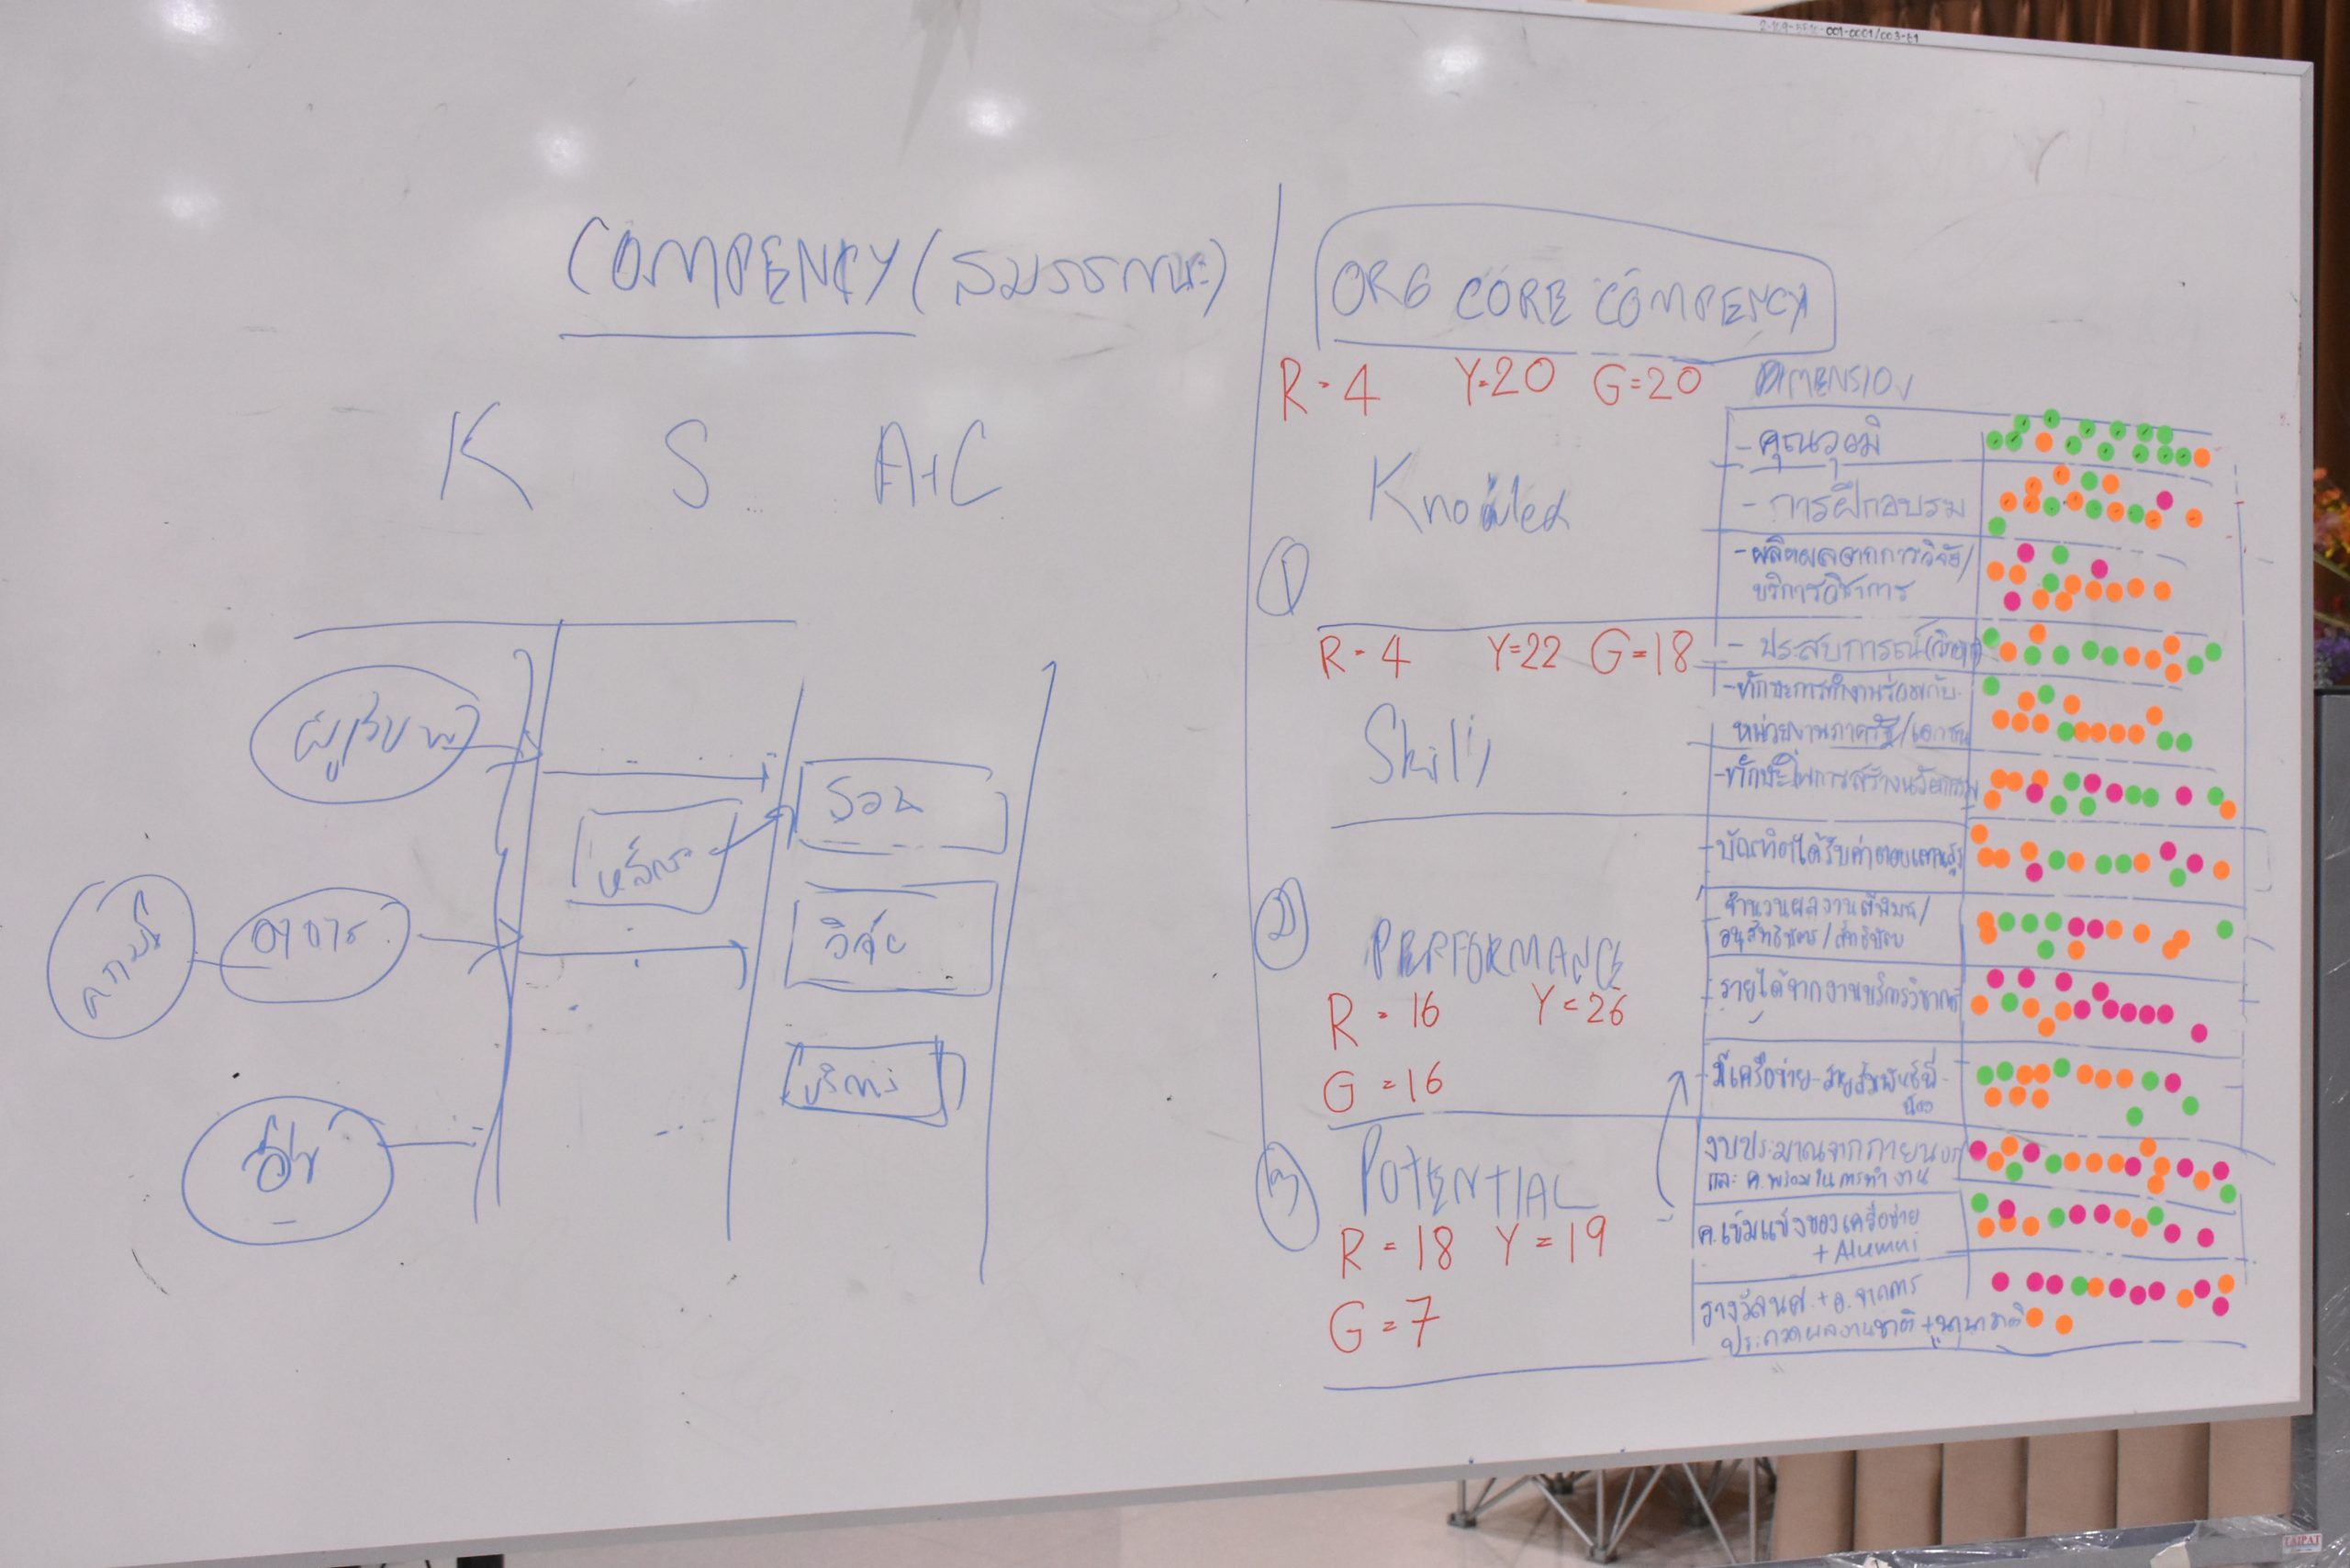 COMPENCY (สมรรถนะ)
K S A+C
ผู้เรียน
อาจาร
หลักสูตร
สอน
วิจัย
บริการ
ORG CORE COMPENCY
R = 4 Y=20 G=20
DIMENSION
Knowled
- คุณวุฒิ
- การฝึกอบรม
- ผลิตผลจากการวิจัย/
บริการวิชาการ
1
R = 4 Y=22 G=18
Skill
- ประสบการณ์
- ทักษะการทำงานร่วมกับ
หน่วยงานภาครัฐ/เอกชน
- ทักษะในการสร้างนวัตกรรม
2
PERFORMANCE
R = 16 Y = 26
G = 16
- บัณฑิตได้รับค่าตอบแทนสูง
- จำนวนผลงานตีพิมพ์/
อนุสิทธิบัตร/สิทธิบัตร
- รายได้จากงานบริการวิชาการ
- มีเครือข่าย-สายสัมพันธ์พี่-
น้อง
3
POTENTIAL
R = 18 Y = 19
G = 7
งบประมาณจากภายนอก
และ ค.พร้อมในการทำงาน
ค.เข้มแข็งของเครือข่าย
+ Alumni
รางวัลนศ. + อ. จากการ
ประกวดผลงานชาติ + นานาชาติ